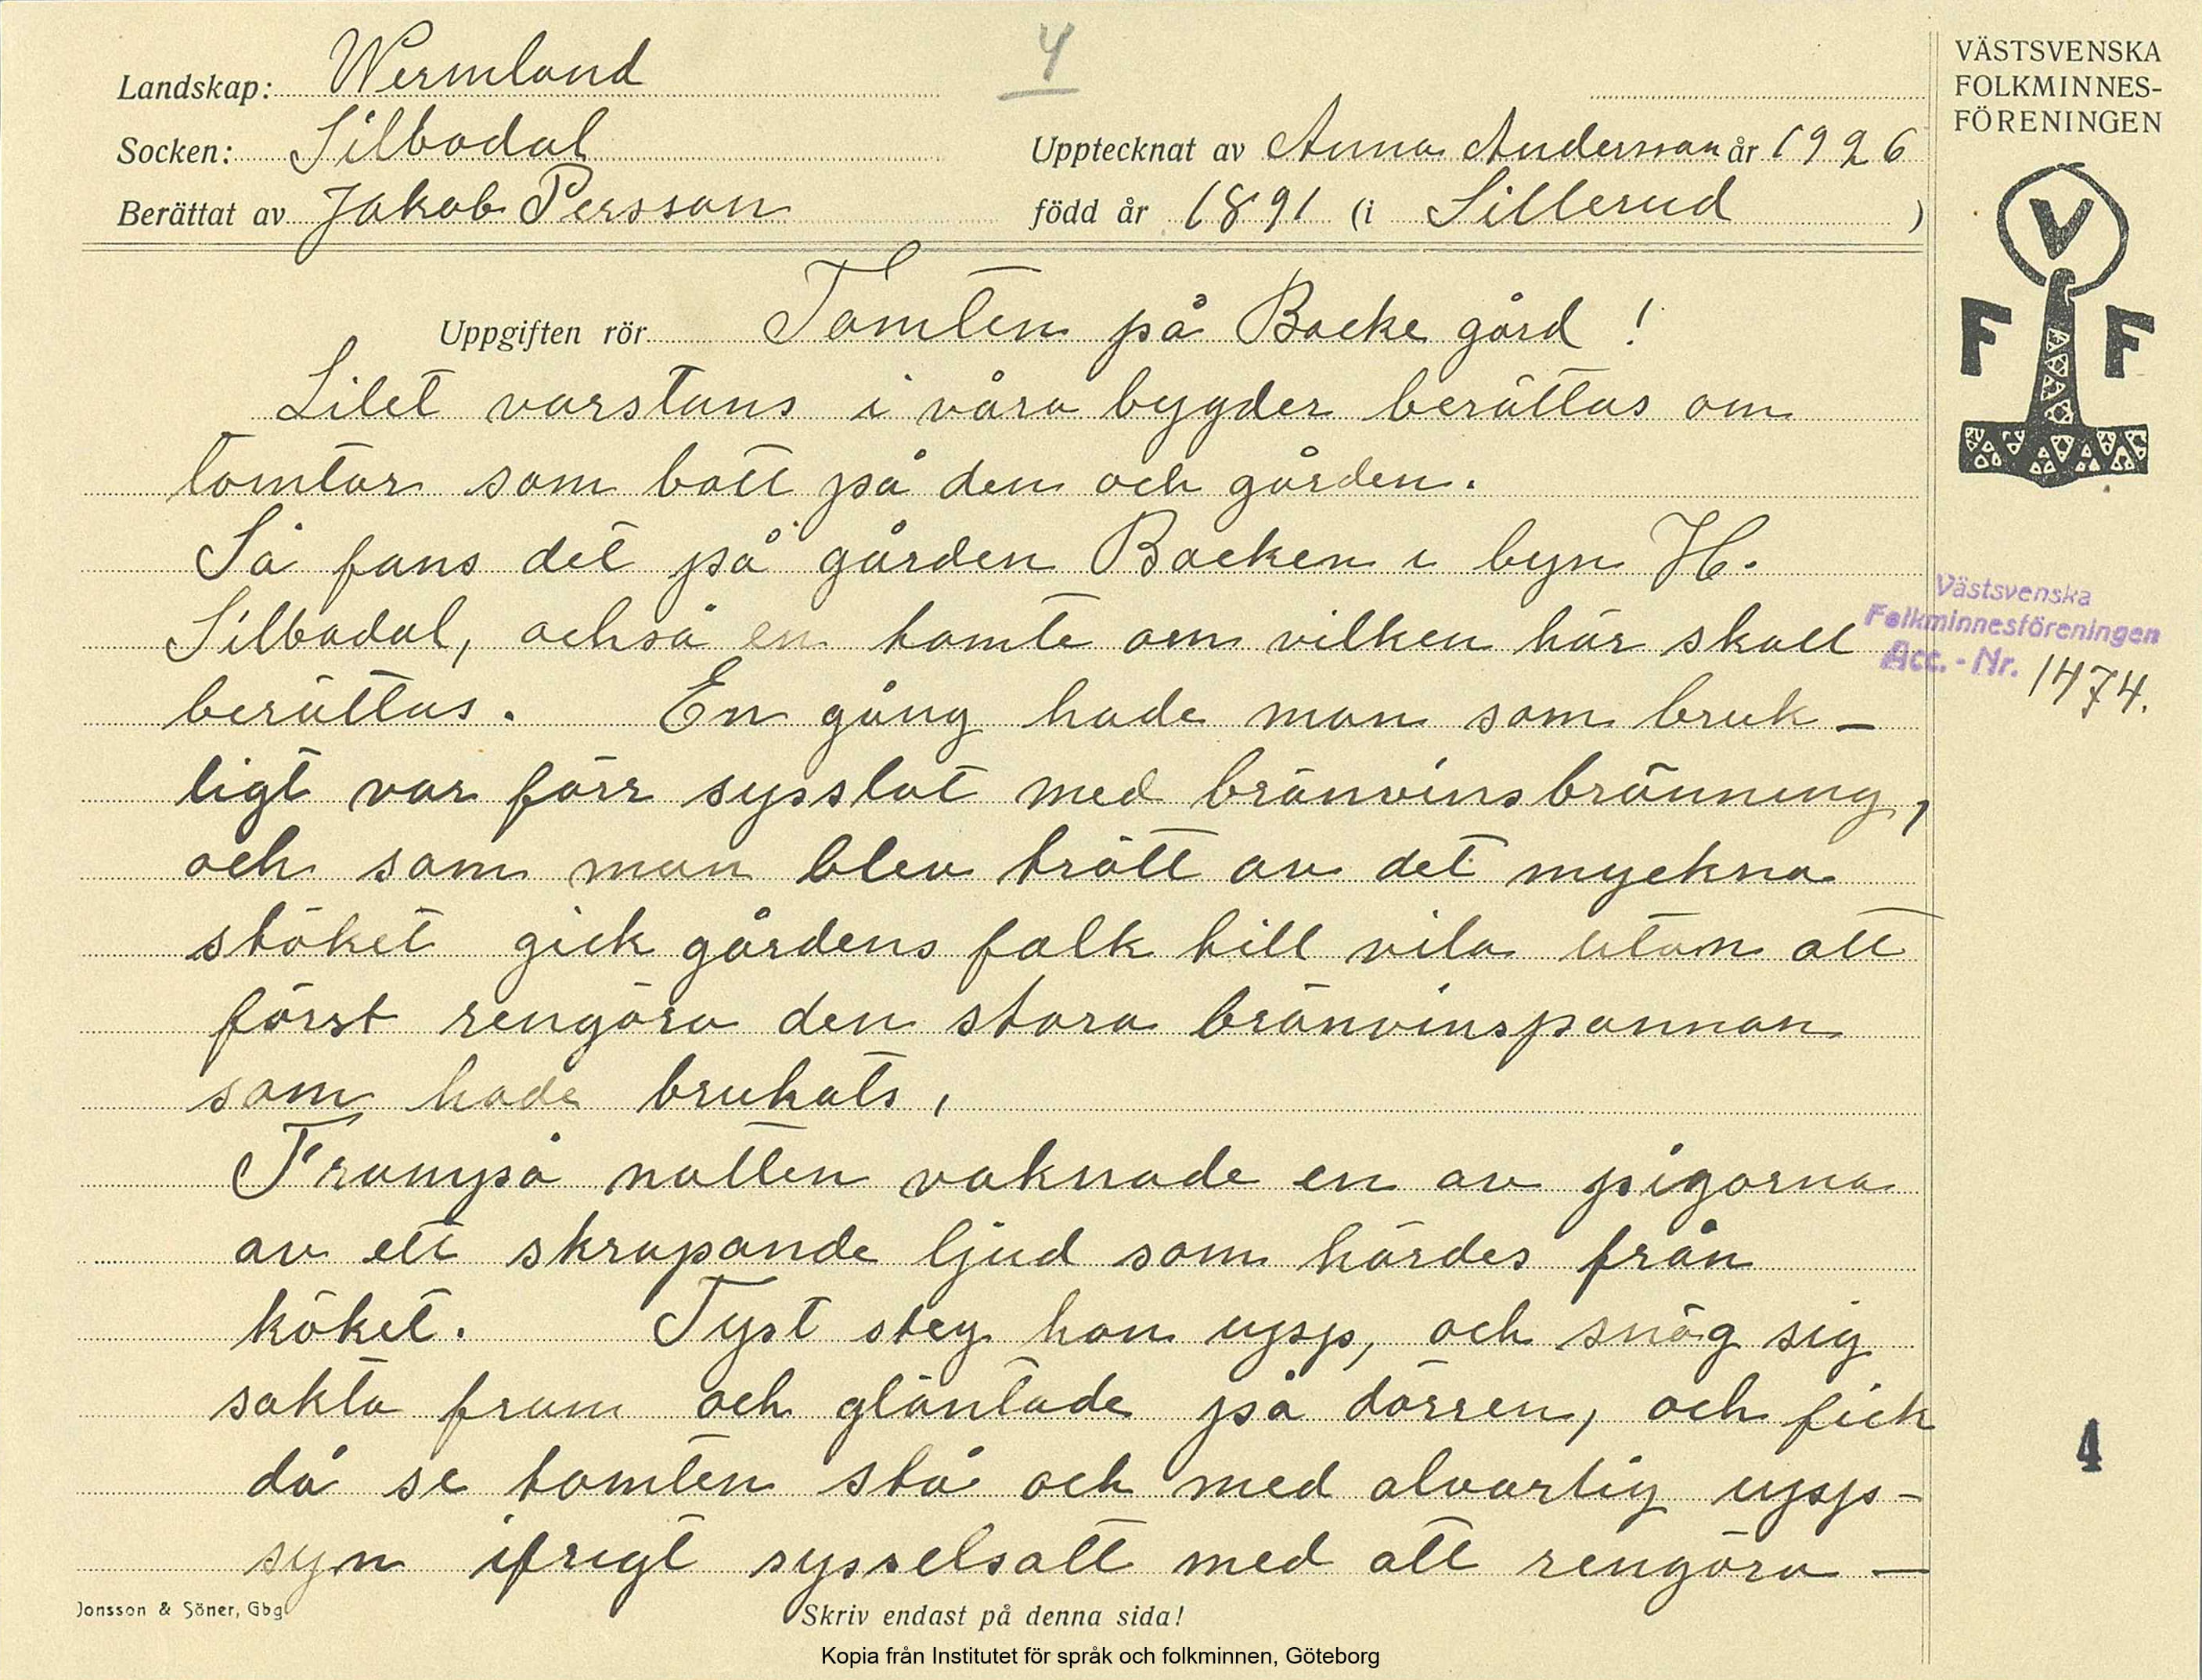 4
VÄSTSVENSKA
FOLKMINNES-
FÖRENINGEN
Landskap: Wermland
Socken: Silbodal
Upptecknat av Anna Andersson år 1926
Berättat av Jakob Persson
född år 1891 (i Sillerud )
V
F F
Uppgiften rör Tomten på Backe gård !
Litet varstans i våra bygder berättas om
tomtar som bott på den och gården.
Så fans det på gården Backen i byn H.
Silbodal, också en tomte om vilken här skall
berättas. En gång hade man som bruk-
ligt var förr sysslat med bränvinsbränning,
och som man blev trött av det myckna
stöket gick gårdens folk till vila utan att
först rengöra den stora bränvinspannan
som hade brukats,
Frampå natten vaknade en av pigorna
av ett skrapande ljud som hördes från
köket. Tyst steg hon upp, och smög sig
sakta fram och gläntade på dörren, och fick
då se tomten stå och med alvarlig upp-
syn ifrigt sysselsatt med att rengöra -
Västsvenska
Folkminnesföreningen
Acc. - Nr. 1474.
4
Jonsson & Söner, Gbg
Skriv endast på denna sida!
Kopia från Institutet för språk och folkminnen, Göteborg